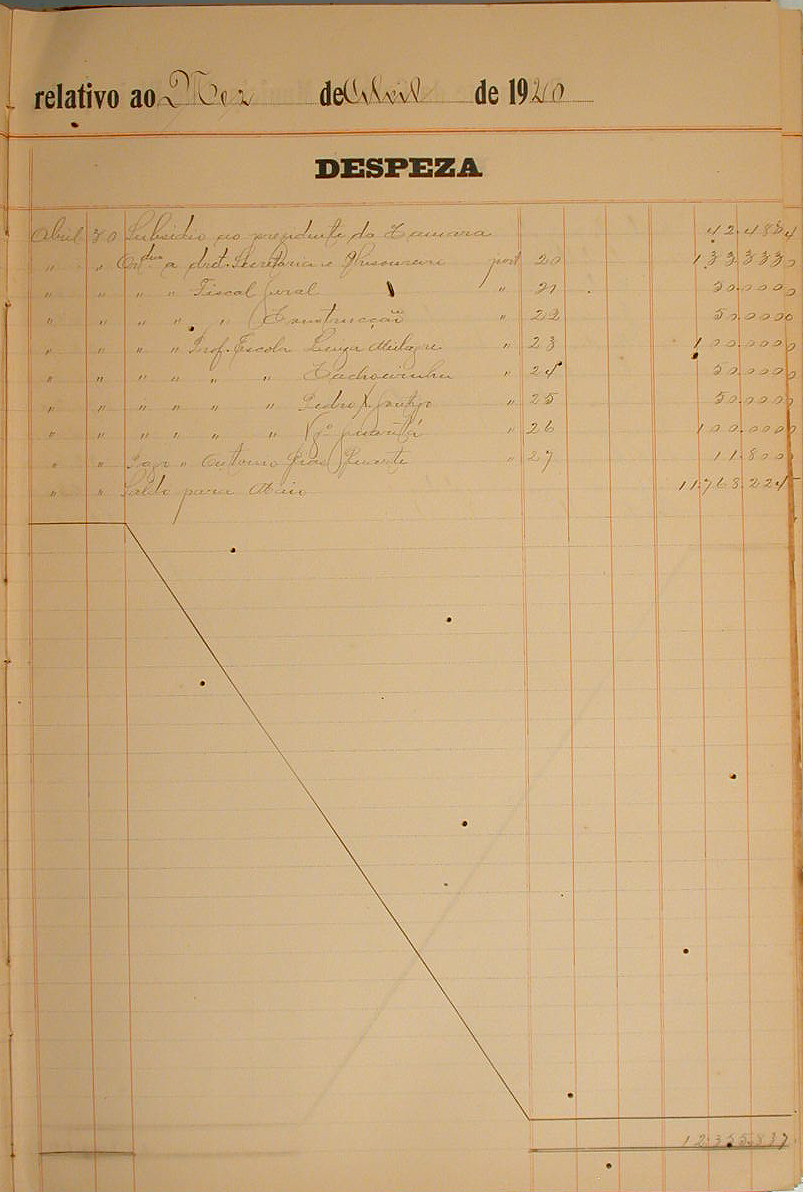 relativo ao Mez de Abril de 1920
DESPEZA
Abril 30 Subsidio ao prezidente da Camara 42.483
" " Ord. a dret. Secretaria e Thisoureiro port 20 133.333
" " " " Fiscal Geral " 21 50.000
" " " " " Construcção " 22 50.000
" " " " Prof. Escola " 23 100.000
" " " " " " Cachoeirinha " 24 50.000
" " " " " " Pedro " 25 50.000
" " " " " " " 26 100.000
" " Pago " Antonio " 27 11.800
" " Saldo para Maio 11.768.224
12.355.837